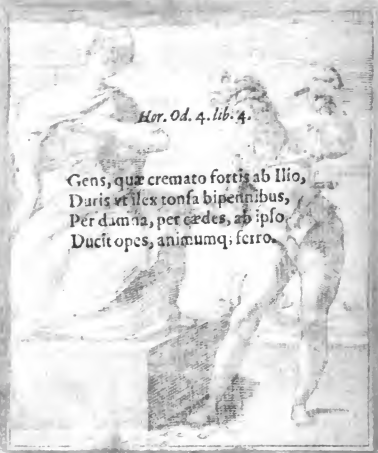 Hor. Od. 4. lib. 4.
Gens, quæ cremato fortis ab Ilio,
Duris vt ilex tonſa bipennibus,
Per damna, per cædes, ab ipſo
Ducit opes, animumq; ferro.